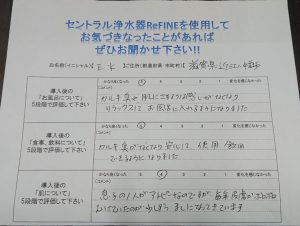 セントラル浄水器ReFINEを使用して
お気づきなったことがあれば
ぜひお聞かせ下さい!!
お名前(イニシャル) E. K ご住所(都道府県・市町村) 滋賀県
導入後の
「お風呂について」
5段階で評価して下さい
かなり良くなった 5 4 3 2 1 変化を感じなかった
(コメント)
カルキ臭が
リラックスして お風呂に入れるようになりました
導入後の
「食事、飲料について」
5段階で評価して下さい
かなり良くなった 5 4 3 2 1 変化を感じなかった
(コメント)
カルキ臭がなくなり安心して 使用 飲用
できるようになりました
導入後の
「肌について」
5段階で評価して下さい
かなり良くなった 5 4 3 2 1 変化を感じなかった
(コメント)
息子の1人がアトピーなのですが 毎年 皮膚が
むいていたのが少しずつ ましになってきています